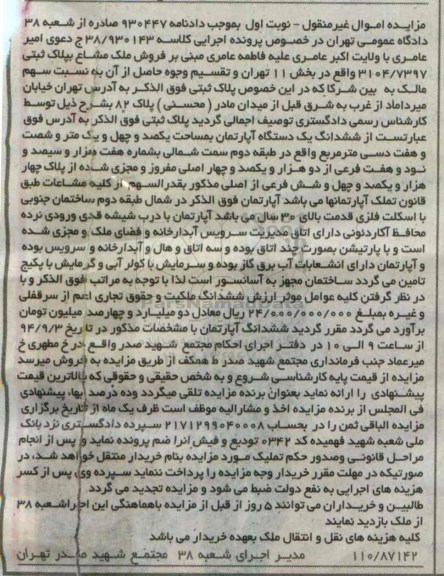 مزایده اموال غیرمنقول - نوبت اول بموجب دادنامه ۹۳۰۴۴۷ صادره از شعبه ۳۸
دادگاه عمومی تهران در خصوص پرونده اجرایی کلاسه ۳۸/۹۳۰۱۴۳ ج دعوی امیر
عامری با ولایت اکبر عامری علیه فاطمه عامری مبنی بر فروش ملک مشاع پلاک ثبتی
۳۱۰۴/۷۳۹۷ واقع در بخش ۱۱ تهران و تقسیم وجوه حاصل از آن به نسبت سهم
مالک به بین شرکا که در این خصوص پلاک ثبتی فوق الذکر به آدرس تهران خیابان
میرداماد از غرب به شرق قبل از میدان مادر ( محسنی ) پلاک ۸۲ بشرح ذیل توسط
کارشناس رسمی دادگستری توصیف اجمالی گردید پلاک ثبتی فوق الذکر به آدرس فوق
عبارتست از ششدانگ یک دستگاه آپارتمان بمساحت یکصد و چهل و یک متر و شصت
و هفت دسی مترمربع واقع در طبقه دوم سمت شمالی بشماره هفت هزار و سیصد و
نود و هفت فرعی از دو هزار و یکصد و چهار اصلی مفروز و مجزی شده از پلاک چهار
هزار و یکصد و چهل و شش فرعی از اصلی مذکور بقدرالسهم از کلیه مشاعات طبق
قانون تملک آپارتمانها می باشد آپارتمان فوق الذکر در شمال طبقه دوم ساختمان جنوبی
با اسکلت فلزی قدمت بالای ۳۰ سال می باشد آپارتمان با درب شیشه قدی ورودی نرده
محافظ آکاردئونی دارای اتاق مدیریت سرویس آبدارخانه و فضای ملک و مجزی شده
است و با پارتیشن بصورت چند اتاق بوده و سه اتاق و هال و آبدارخانه و سرویس بوده
و آپارتمان دارای انشعابات آب برق گاز بوده و سرمایش با کولر آبی و گرمایش با پکیج
تامین می گردد ساختمان مجهز به آسانسور است لذا با توجه به مراتب فوق الذکر و با
در نظر گرفتن کلیه عوامل موثر ارزش ششدانگ ملکیت و حقوق تجاری اعم از سرقفلی
و غیره بمبلغ ۲۴/۰۰۰/۰۰۰/۰۰۰ ریال معادل دو میلیارد و چهارصد میلیون تومان
برآورد می گردد مقرر گردید ششدانگ آپارتمان با مشخصات مذکور در تاریخ ۹۴/۹/۳
از ساعت ۹ الی ۱۰ در دفتر اجرای احکام مجتمع شهید صدر واقع در خ مطهری خ
میرعماد جنب فرمانداری مجتمع شهید صدر ط همکف از طریق مزایده به فروش میرسد
مزایده از قیمت پایه کارشناسی شروع و به شخص حقیقی و حقوقی که بالاترین قیمت
پیشنهادی را ارائه نماید بعنوان برنده مزایده تلقی میگردد وده درصد بها، پیشنهادی
فی المجلس از برنده مزایده اخذ و مشارالیه موظف است ظرف یک ماه از تاریخ برگزاری
مزایده الباقی ثمن را در بحساب ۲۱۷۱۲۹۹۰۴۰۰۰۸ سپرده دادگستری نزد بانک
ملی شعبه شهید فهمیده کد ۰۳۴۲ تودیع و فیش آنرا ضم پرونده نماید و پس از انجام
مراحل قانونی وصدور حکم تملیک مورد مزایده بنام خریدار منتقل خواهد شد، در
صورتیکه در مهلت مقرر خریدار وجه مزایده را پرداخت ننماید سپرده وی پس از کسر
هزینه های اجرایی به نفع دولت ضبط می شود و مزایده تجدید می گردد
طالبین و خریداران می توانند ۵ روز از قبل از مزایده باهماهنگی این اجراشعبه ۳۸
از ملک بازدید نمایند
کلیه هزینه های نقل و انتقال ملک بعهده خریدار می باشد
۱۱۰/۸۷۱۴۲ مدیر اجرای شعبه ۳۸ مجتمع شهید صدر تهران